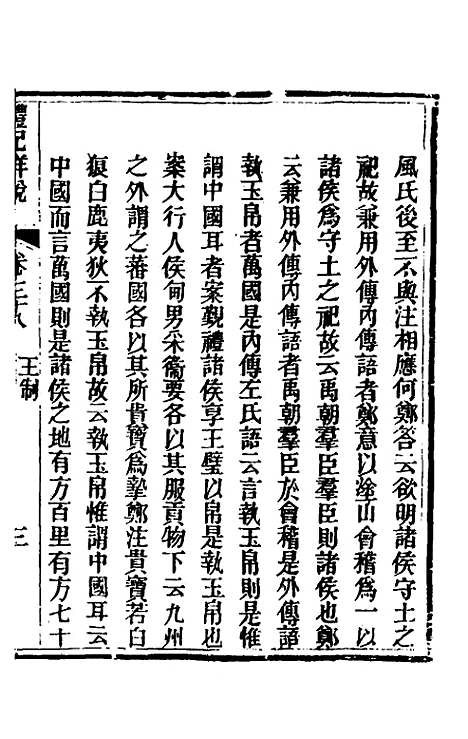 風氏後至不與注相應何鄭答云欲明諸侯守土之
祀故兼用外傳內傳語者鄭意以塗山會稽爲一以
諸侯爲守土之祀故云禹朝羣臣羣臣則諸侯也鄭
云兼用外傳內傳語者禹朝羣臣於會稽是外傳語
執玉帛者萬國是內傳左氏語云言執玉帛則是惟
謂中國耳者案覲禮諸侯享王璧以帛是執玉帛也
案大行人侯甸男采衞要各以其服貢物下云九州
之外謂之蕃國各以其所貴寶爲摯鄭注貴寶若白
狼白鹿夷狄不執玉帛故云執玉帛惟謂中國耳云
中國而言萬國則是諸侯之地有方百里有方七十
禮記詳說
卷三十八
王制
三